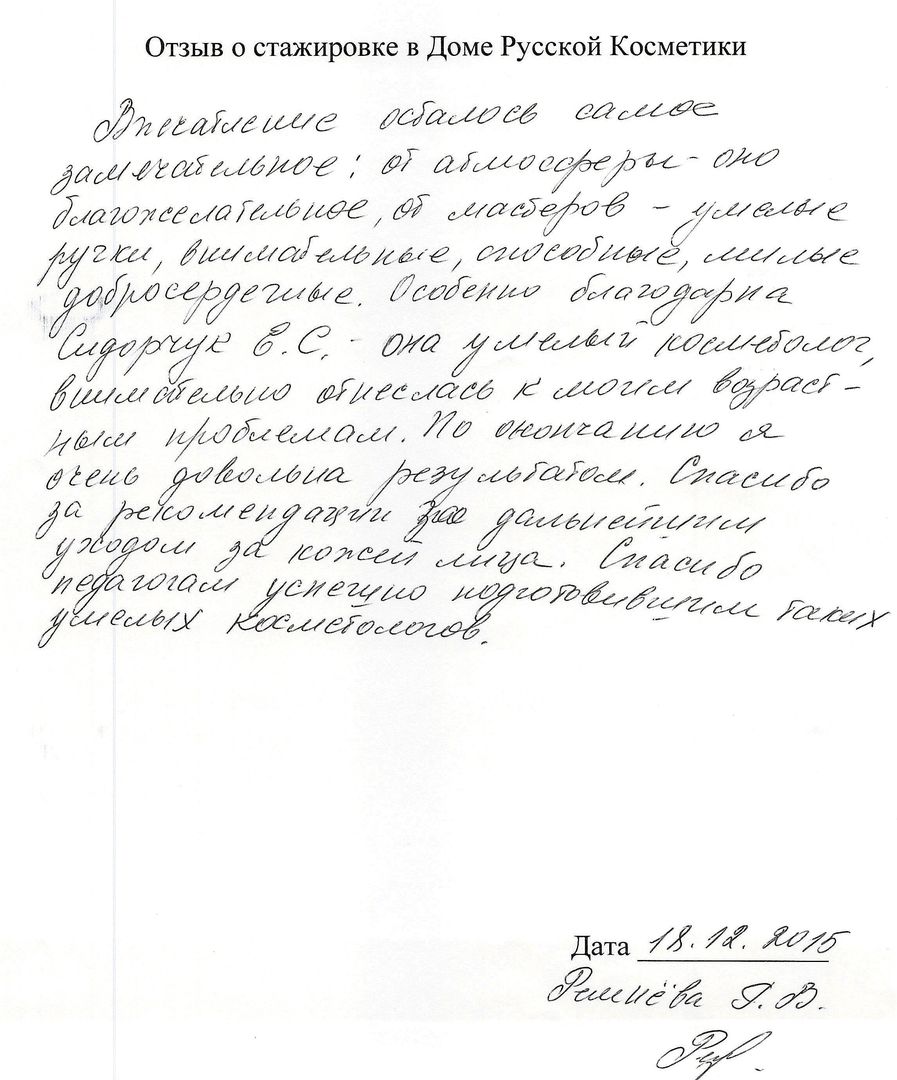 Отзыв о стажировке в Доме Русской Косметики
Впечатление осталось самое
замечательное: от атмосферы - оно
благожелательное, от мастеров - умелые
ручки, внимательные, способные, милые
добросердечные. Особенно благодарна
Сидорчук Е.С. - она умелый косметолог,
внимательно отнеслась к моим возраст-
ным проблемам. По окончанию я
очень довольна результатом. Спасибо
за рекомендации за дальнейшим
уходом за кожей лица. Спасибо
педагогам успешно подготовившим таких
умелых косметологов.
Дата 18.12.2015
Ремнёва Г.В.